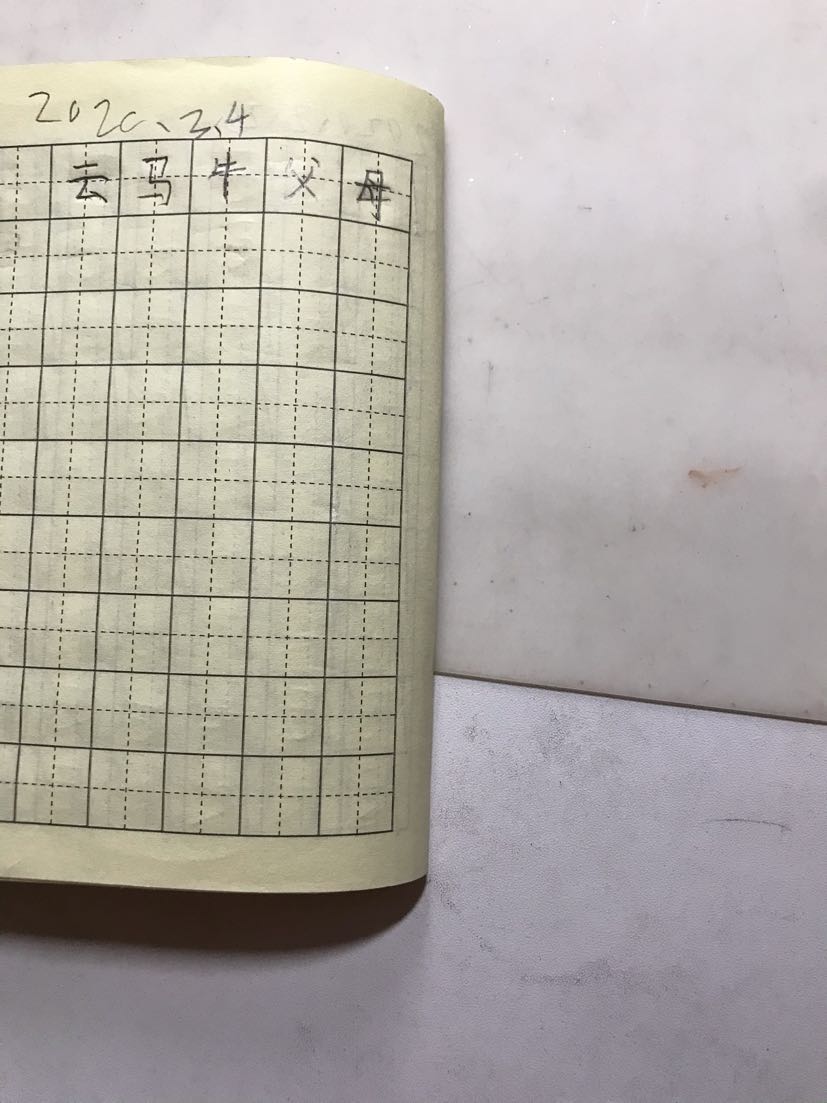 2020、2、4
云马牛父母